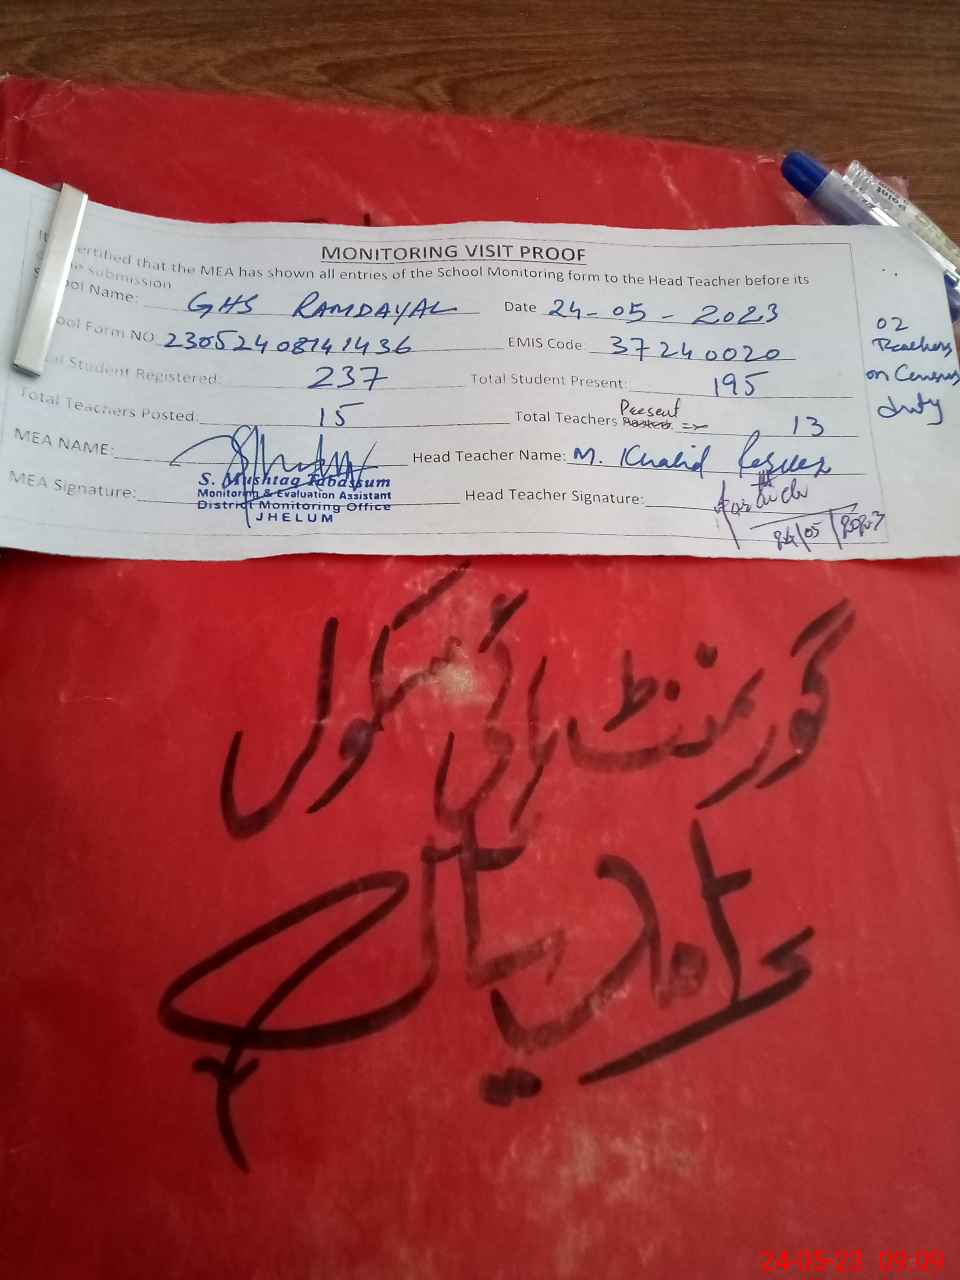 MONITORING VISIT PROOF
It ertified that the MEA has shown all entries of the School Monitoring form to the Head Teacher before its
submission
ool Name: GHS RAMDAYAL Date 24-05-2023
ool Form NO 23052408141436 EMIS Code 37240020
al Student Registered: 237 Total Student Present: 195
Total Teachers Posted: 15 Total Teachers Present 13
MEA NAME: Head Teacher Name: M. Khalid
S. Mushtaq Tabassum
Monitoring & Evaluation Assistant
MEA Signature: Head Teacher Signature:
District Monitoring Office
JHELUM
24/05/2023
02
Teachers
on Census
duty
گورنمنٹ ہائی سکول
رامدیال
24-05-23 09:09